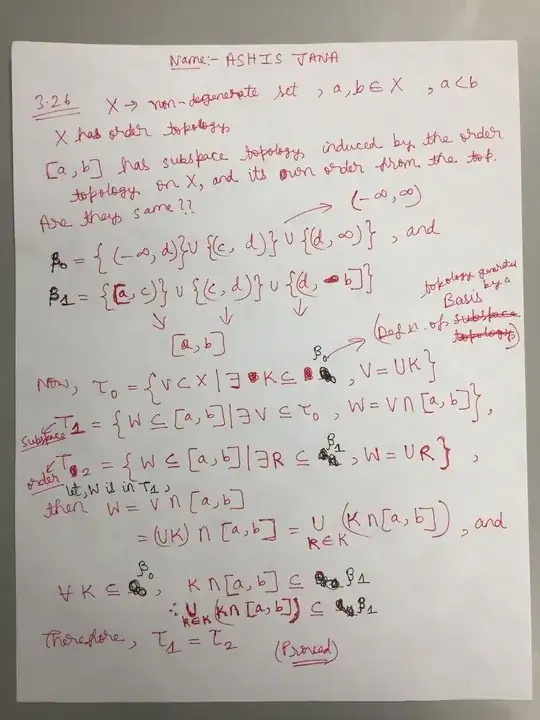 Name:- ASHIS JANA
3.26 X → non-degenerate set , a, b ∈ X , a < b
X has order topology
[a, b] has subspace topology induced by the order
topology on X, and its own order from the top.
Are they same??
(-∞, ∞)
β₀ = { (-∞, d)} ∪ {(c, d)} ∪ {(d, ∞)} , and
β₁ = {[a, c)} ∪ {(c, d)} ∪ {(d, b]}
[a, b]
topology generated
by a
Basis
(Defn. of subspace
topology)
Now, τ₀ = {V ⊂ X | ∃ K ⊆ β₀ , V = ∪K}
subspace τ₁ = { W ⊆ [a, b] | ∃ V ⊆ τ₀ , W = V ∩ [a, b]} ,
order τ₂ = { W ⊆ [a, b] | ∃ R ⊆ β₁ , W = ∪R } ,
let, W is in τ₁ ,
then W = V ∩ [a, b]
= (∪K) ∩ [a, b] = ∪ (K ∩ [a, b]) , and
k ∈ K
∀ K ⊆ β₀ , K ∩ [a, b] ⊆ β₁
∴ ∪ (K ∩ [a, b]) ⊆ β₁
k ∈ K
Therefore, τ₁ = τ₂ (Proved)